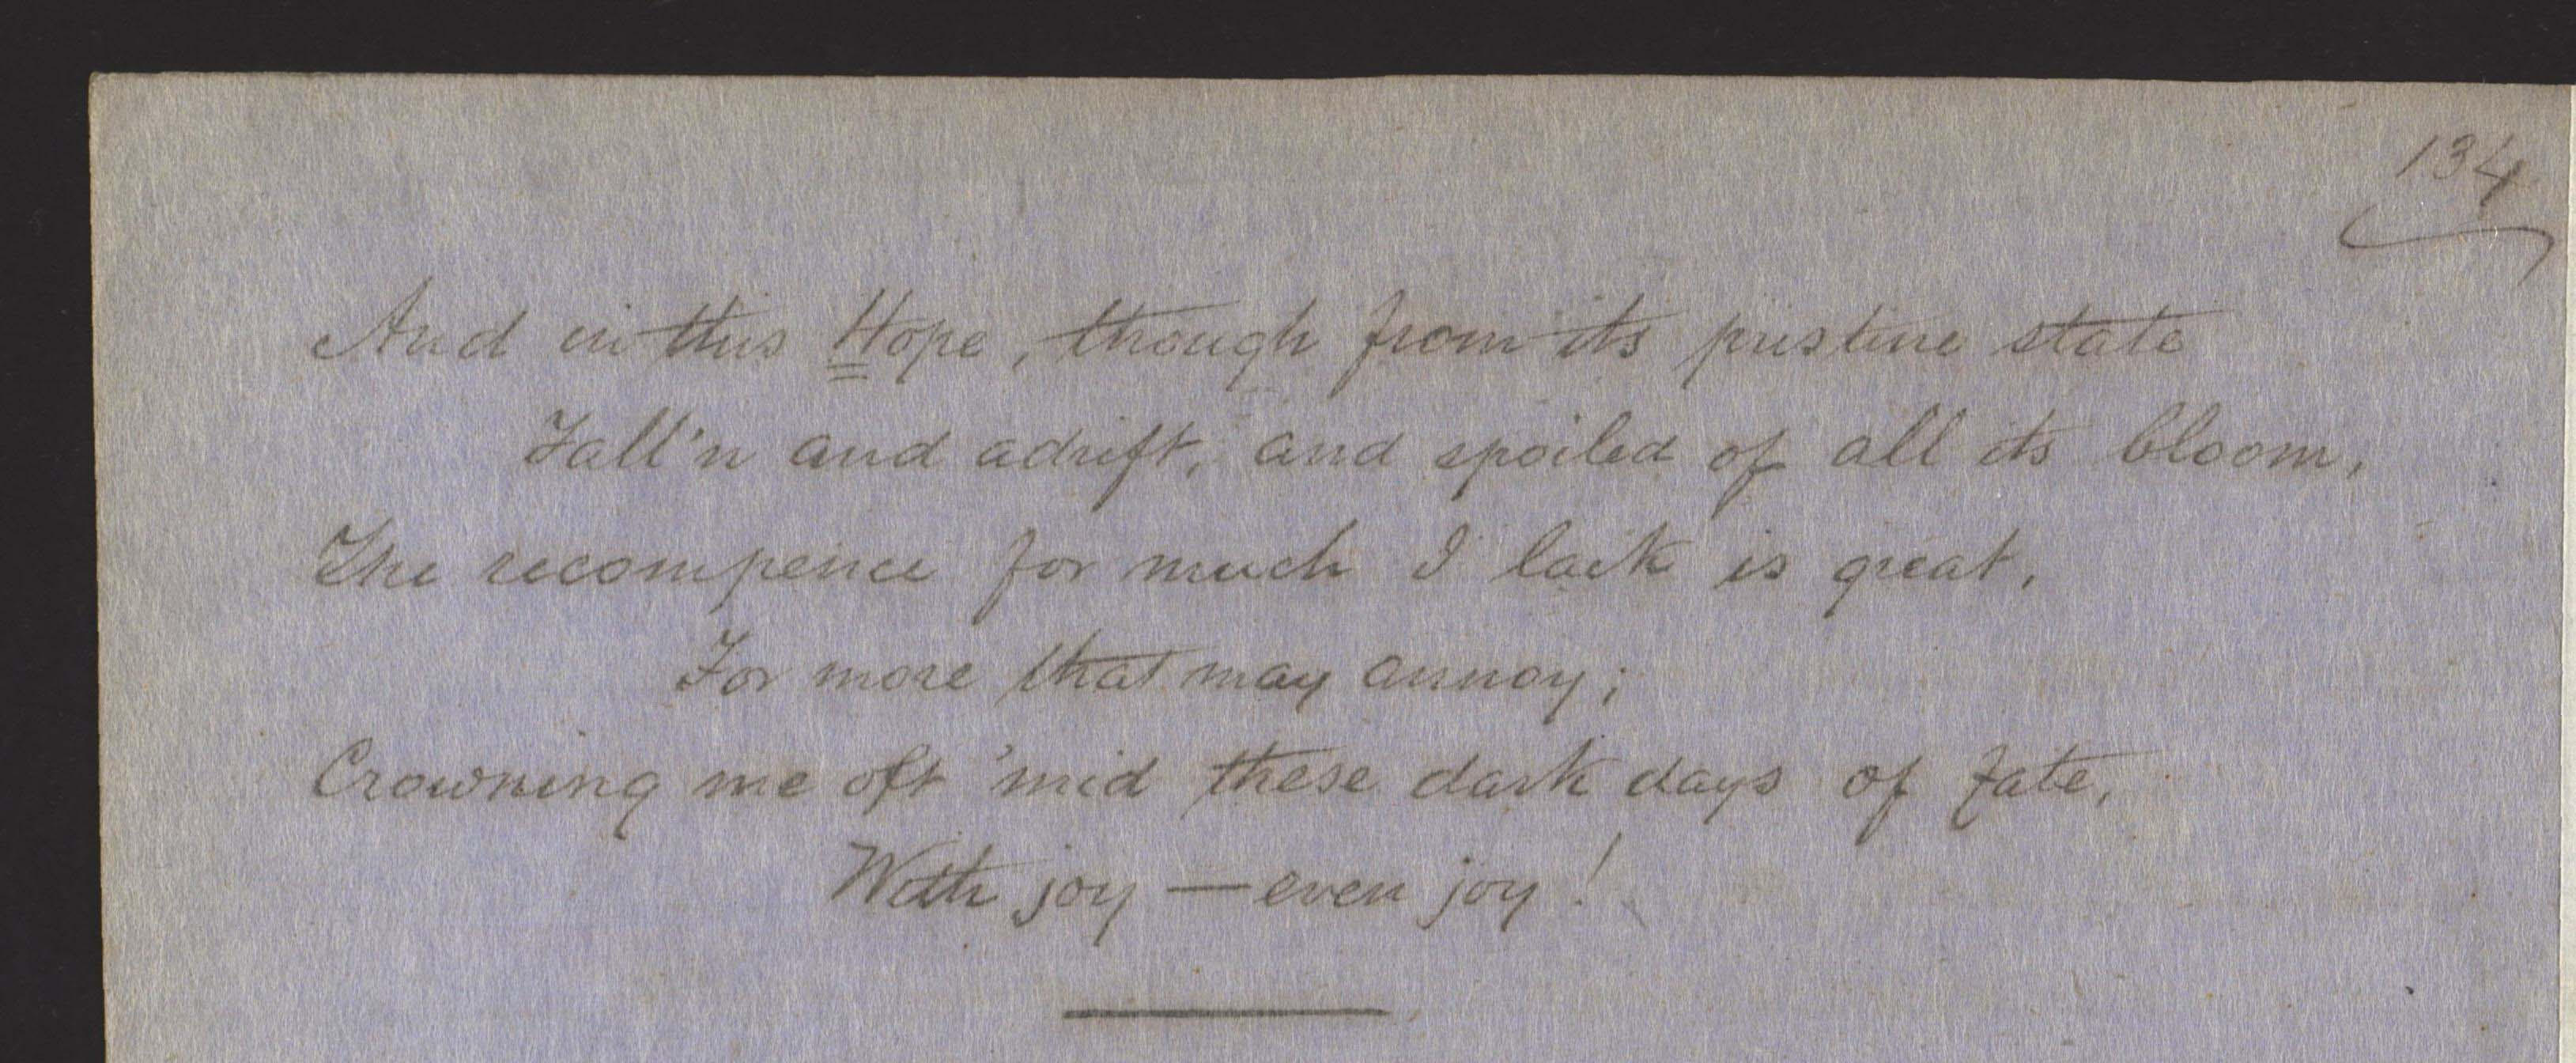 134
And in this Hope, though from its pristine state
Fall'n and adrift, and spoiled of all its bloom,
The recompence for much I lack is great,
For more that may annoy;
Crowning me oft 'mid these dark days of fate,
With joy — even joy!